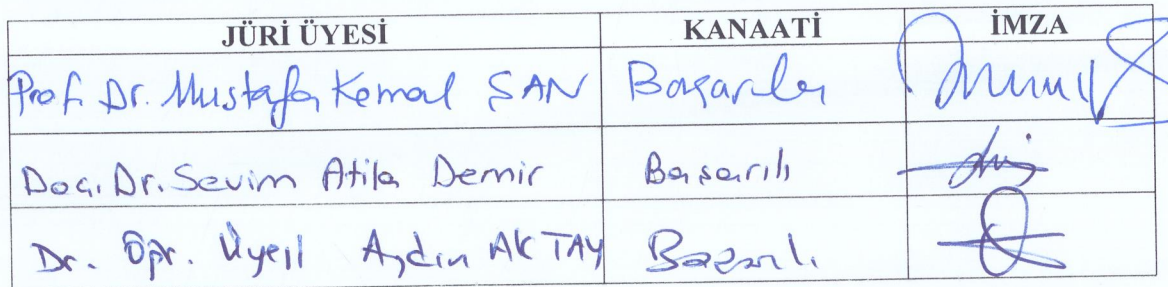 JÜRİ ÜYESİ KANAATİ İMZA
Prof. Dr. Mustafa Kemal ŞAN Başarılı
Doç. Dr. Sevim Atila Demir Başarılı
Dr. Öğr. Üyesi Aydın AKTAY Başarılı